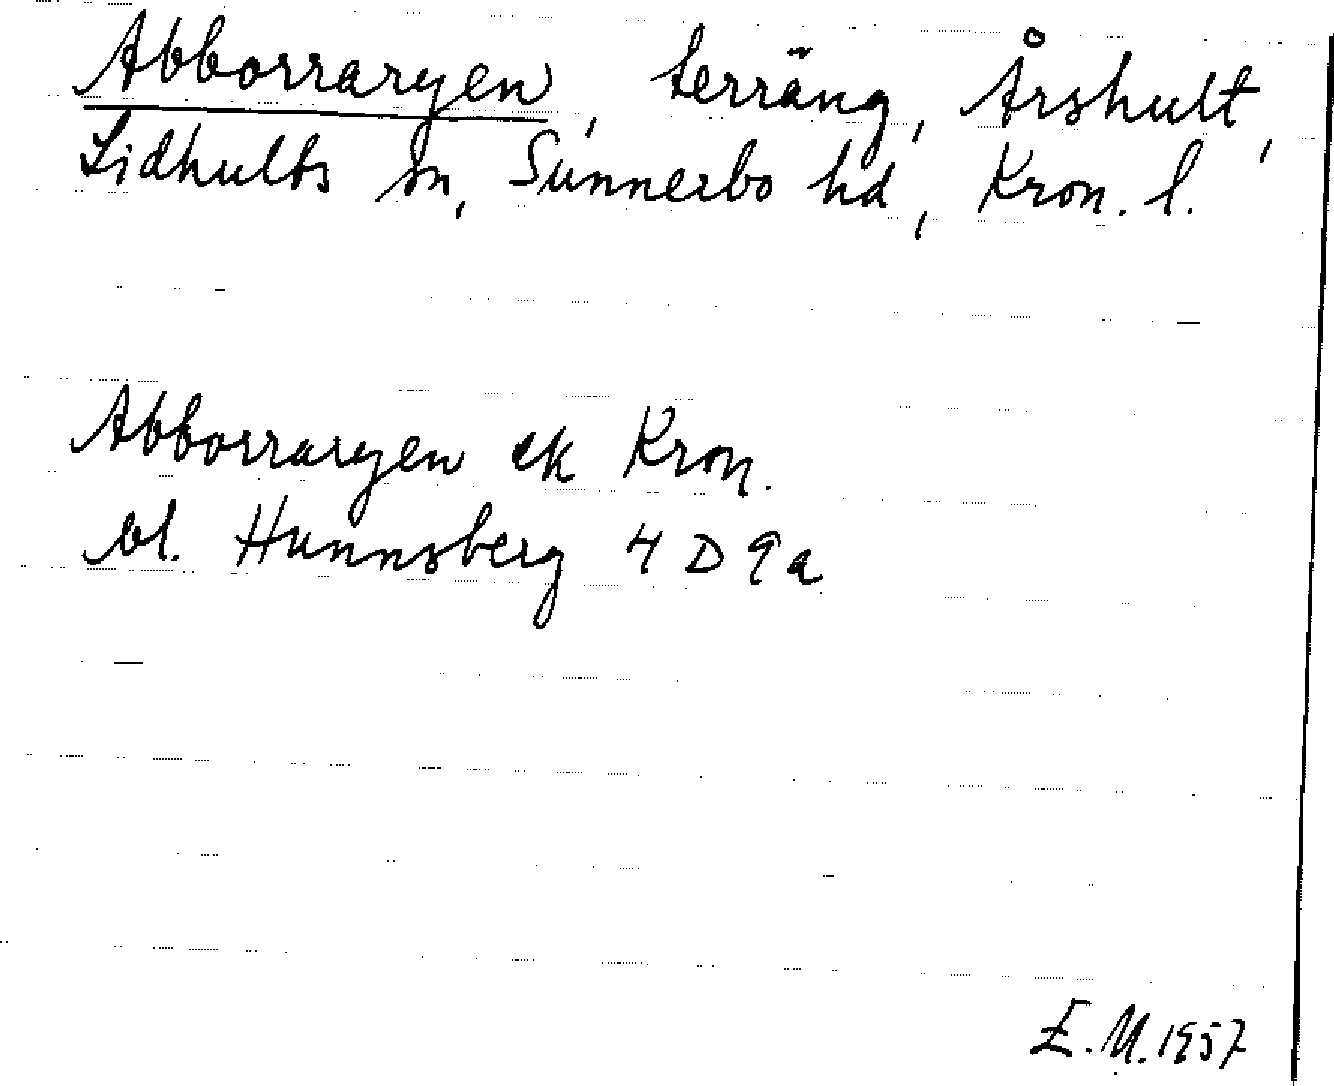 Abborraryen, terräng, Årshult,
Lidhults sn, Sunnerbo hd, Kron. l.
Abborraryen ek Kron.
bl. Hunnsberg 4 D 9 a
E.M. 1957